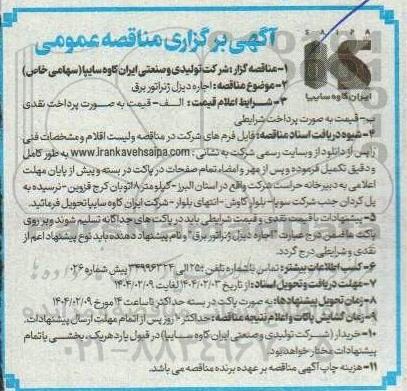 آگهی برگزاری مناقصه عمومی
ایران کاوه سایپا
۱- مناقصه گزار: شرکت تولیدی و صنعتی ایران کاوه سایپا (سهامی خاص)
۲- موضوع مناقصه: اجاره دیزل ژنراتور برق
۳- شرایط اعلام قیمت: الف- قیمت به صورت پرداخت نقدی
ب- قیمت به صورت پرداخت شرایطی
۴- شیوه دریافت اسناد مناقصه: فایل فرم های شرکت در مناقصه ولیست اقلام و مشخصات فنی
را پس از دانلود از وبسایت رسمی شرکت به نشانی: www.irankavehsaipa.com به طور کامل
و دقیق تکمیل فرموده و پس از مهر و امضاء تمام صفحات در پاکت در بسته و پیش از پایان مهلت
اعلامی به دبیرخانه حراست شرکت واقع در استان البرز - کیلومتر ۸ اتوبان کرج قزوین - نرسیده به
پل کردان جنب شرکت سوپا - بلوار کاوش - انتهای بلوار - شرکت ایران کاوه سایپا تحویل فرمائید.
۵- پیشنهادات با قیمت نقدی و قیمت شرایطی باید در پاکت های جداگانه تسلیم شوند و بر روی
پاکت مناقصه درج صورت "اجاره دیزل ژنراتور برق" و نام پیشنهاد دهنده باید نوع پیشنهاد اعم از
نقدی و شرایطی درج گردد.
۶- کسب اطلاعات بیشتر: تماس با شماره تلفن: ۲۵۰ الی ۳۴۹۹۶۲۲۴ پیش شماره ۰۲۶
۷- مهلت دریافت و تحویل اسناد: از تاریخ ۱۴۰۴/۰۲/۰۳ لغایت ۱۴۰۴/۰۲/۰۹
۸- زمان تحویل پیشنهادها: به صورت پاکت در بسته حداکثر تا ساعت ۱۴ مورخ ۱۴۰۴/۰۲/۰۹
۹- زمان گشایش پاکات و اعلام نتیجه مناقصه: حداکثر ۱۰ روز پس از اتمام مهلت ارسال پیشنهادات.
۱۰- خریدار (شرکت تولیدی و صنعتی ایران کاوه سایپا) در قبول یا رد هریک، بخشی یا تمام
پیشنهادات مختار خواهد بود.
۱۱- هزینه چاپ آگهی مناقصه بر عهده برنده مناقصه می باشد.